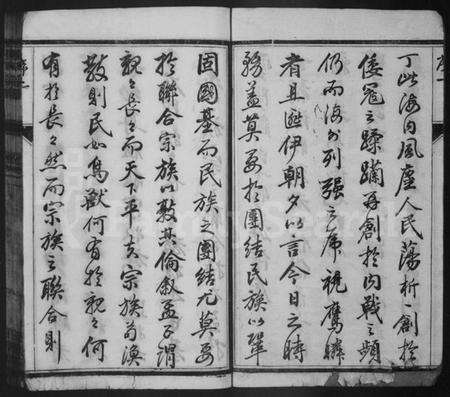 丁此海内風塵人民蕩析一創於
倭寇之蹂躪再創於内戰之頻
仍而海外列强之虎視鷹瞵
者且迤伊朝夕以言今日之時
務蓋莫要於團結民族以鞏
固國基而民族之團結尤莫要
於聯合宗族以敦其倫叙孟子謂
親々長々而天下平夫宗族苟渙
散則民如鳥獸何有於親々何
有於長々然而宗族之聯合則
FamilySearch